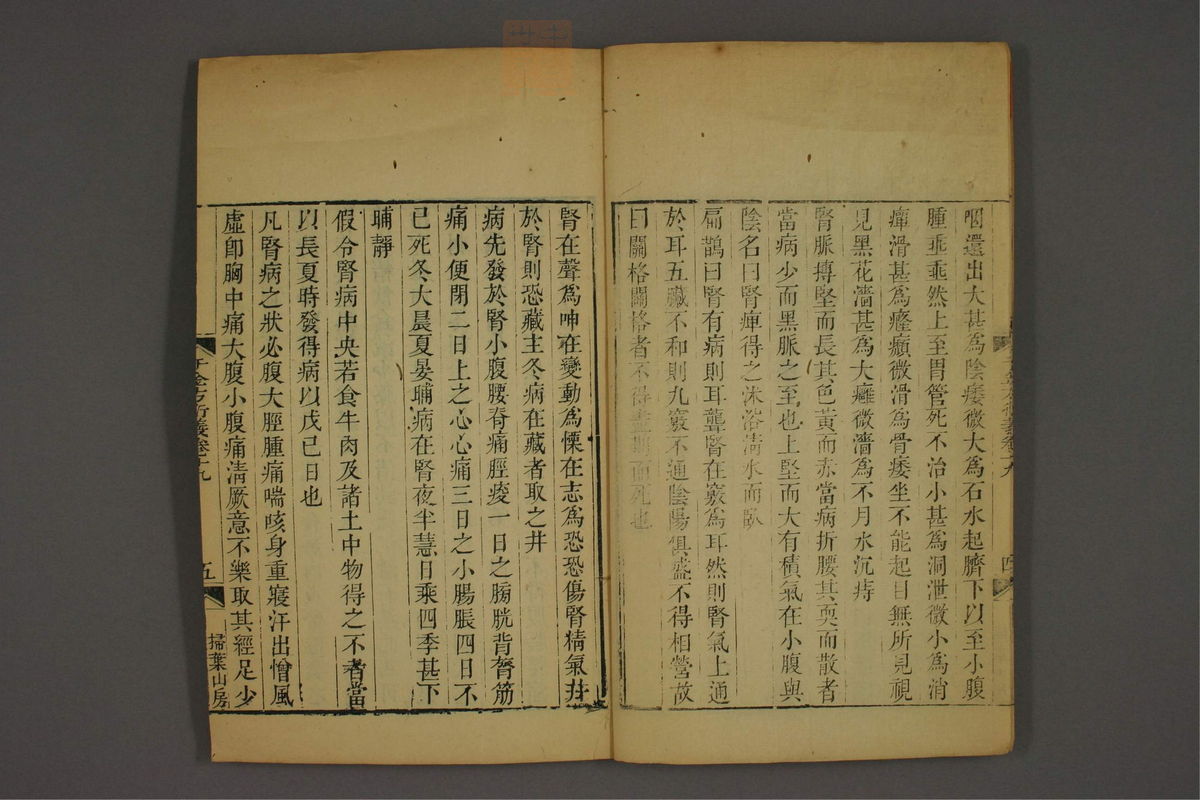 咽還出大甚爲陰痿微大爲石水起臍下以至小腹
腫垂垂然上至胃管死不治小甚爲洞泄微小爲消
癉滑甚爲癃㿗微滑爲骨痿坐不能起目無所見視
見黑花濇甚爲大癰微濇爲不月水沉痔
腎脈搏堅而長其色黃而赤當病折腰其耎而散者
當病少而黑脈之至也上堅而大有積氣在小腹與
陰名曰腎痺得之沐浴淸水而臥
扁鵲曰腎有病則耳聾腎在竅爲耳然則腎氣上通
於耳五臟不和則九竅不通陰陽俱盛不得相營故
曰關格關格者不得盡期而死也
千金方衍義卷十九
四
腎在聲爲呻在變動爲慄在志爲恐恐傷腎精氣并
於腎則恐藏主冬病在藏者取之井
病先發於腎小腹腰脊痛脛痠一日之膀胱背膂筋
痛小便閉二日上之心心痛三日之小腸脹四日不
已死冬大晨夏晏晡病在腎夜半慧日乘四季甚下
晡靜
假令腎病中央若食牛肉及諸土中物得之不者當
以長夏時發得病以戊己日也
凡腎病之狀必腹大脛腫痛喘咳身重寢汗出憎風
虛卽胸中痛大腹小腹痛淸厥意不樂取其經足少
千金方衍義卷十九
五
掃葉山房